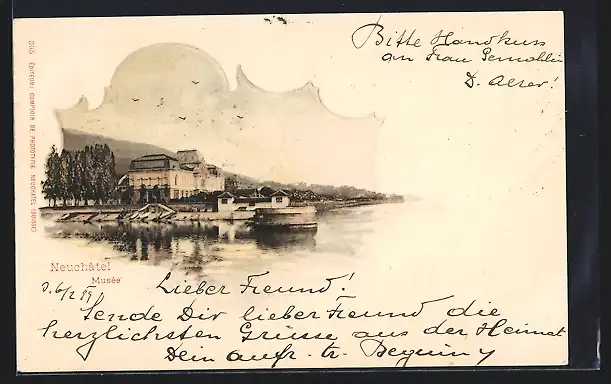 Bitte Handkuss
an Frau Gemahlin
D. Alter!
2005 EDITEUR: COMPTOIR DE PHOTOTYPIE NEUCHATEL (SUISSE)
Neuchâtel
Musée
Lieber Freund!
d. 6/2 99
Sende Dir lieber Freund die
herzlichsten Grüsse aus der Heimat
Dein aufr. tr. Beguiny